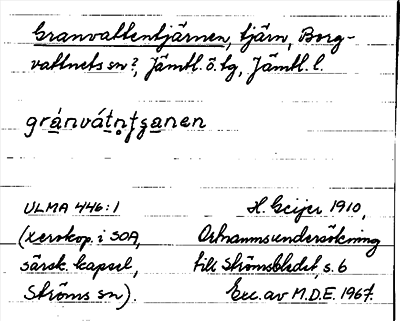 Granvattentjärnen, tjärn, Borg-
vattnets sn?, Jämtl. ö. tg, Jämtl. l.
gránvátnt̯s̯anen
ULMA 446:1 H. Geijer 1910,
(xerokop. i SOA, Ortnamnsundersökning
särsk. kapsel, till Strömsbladet, s. 6
Ströms sn). Exc. av M.D.E. 1967.